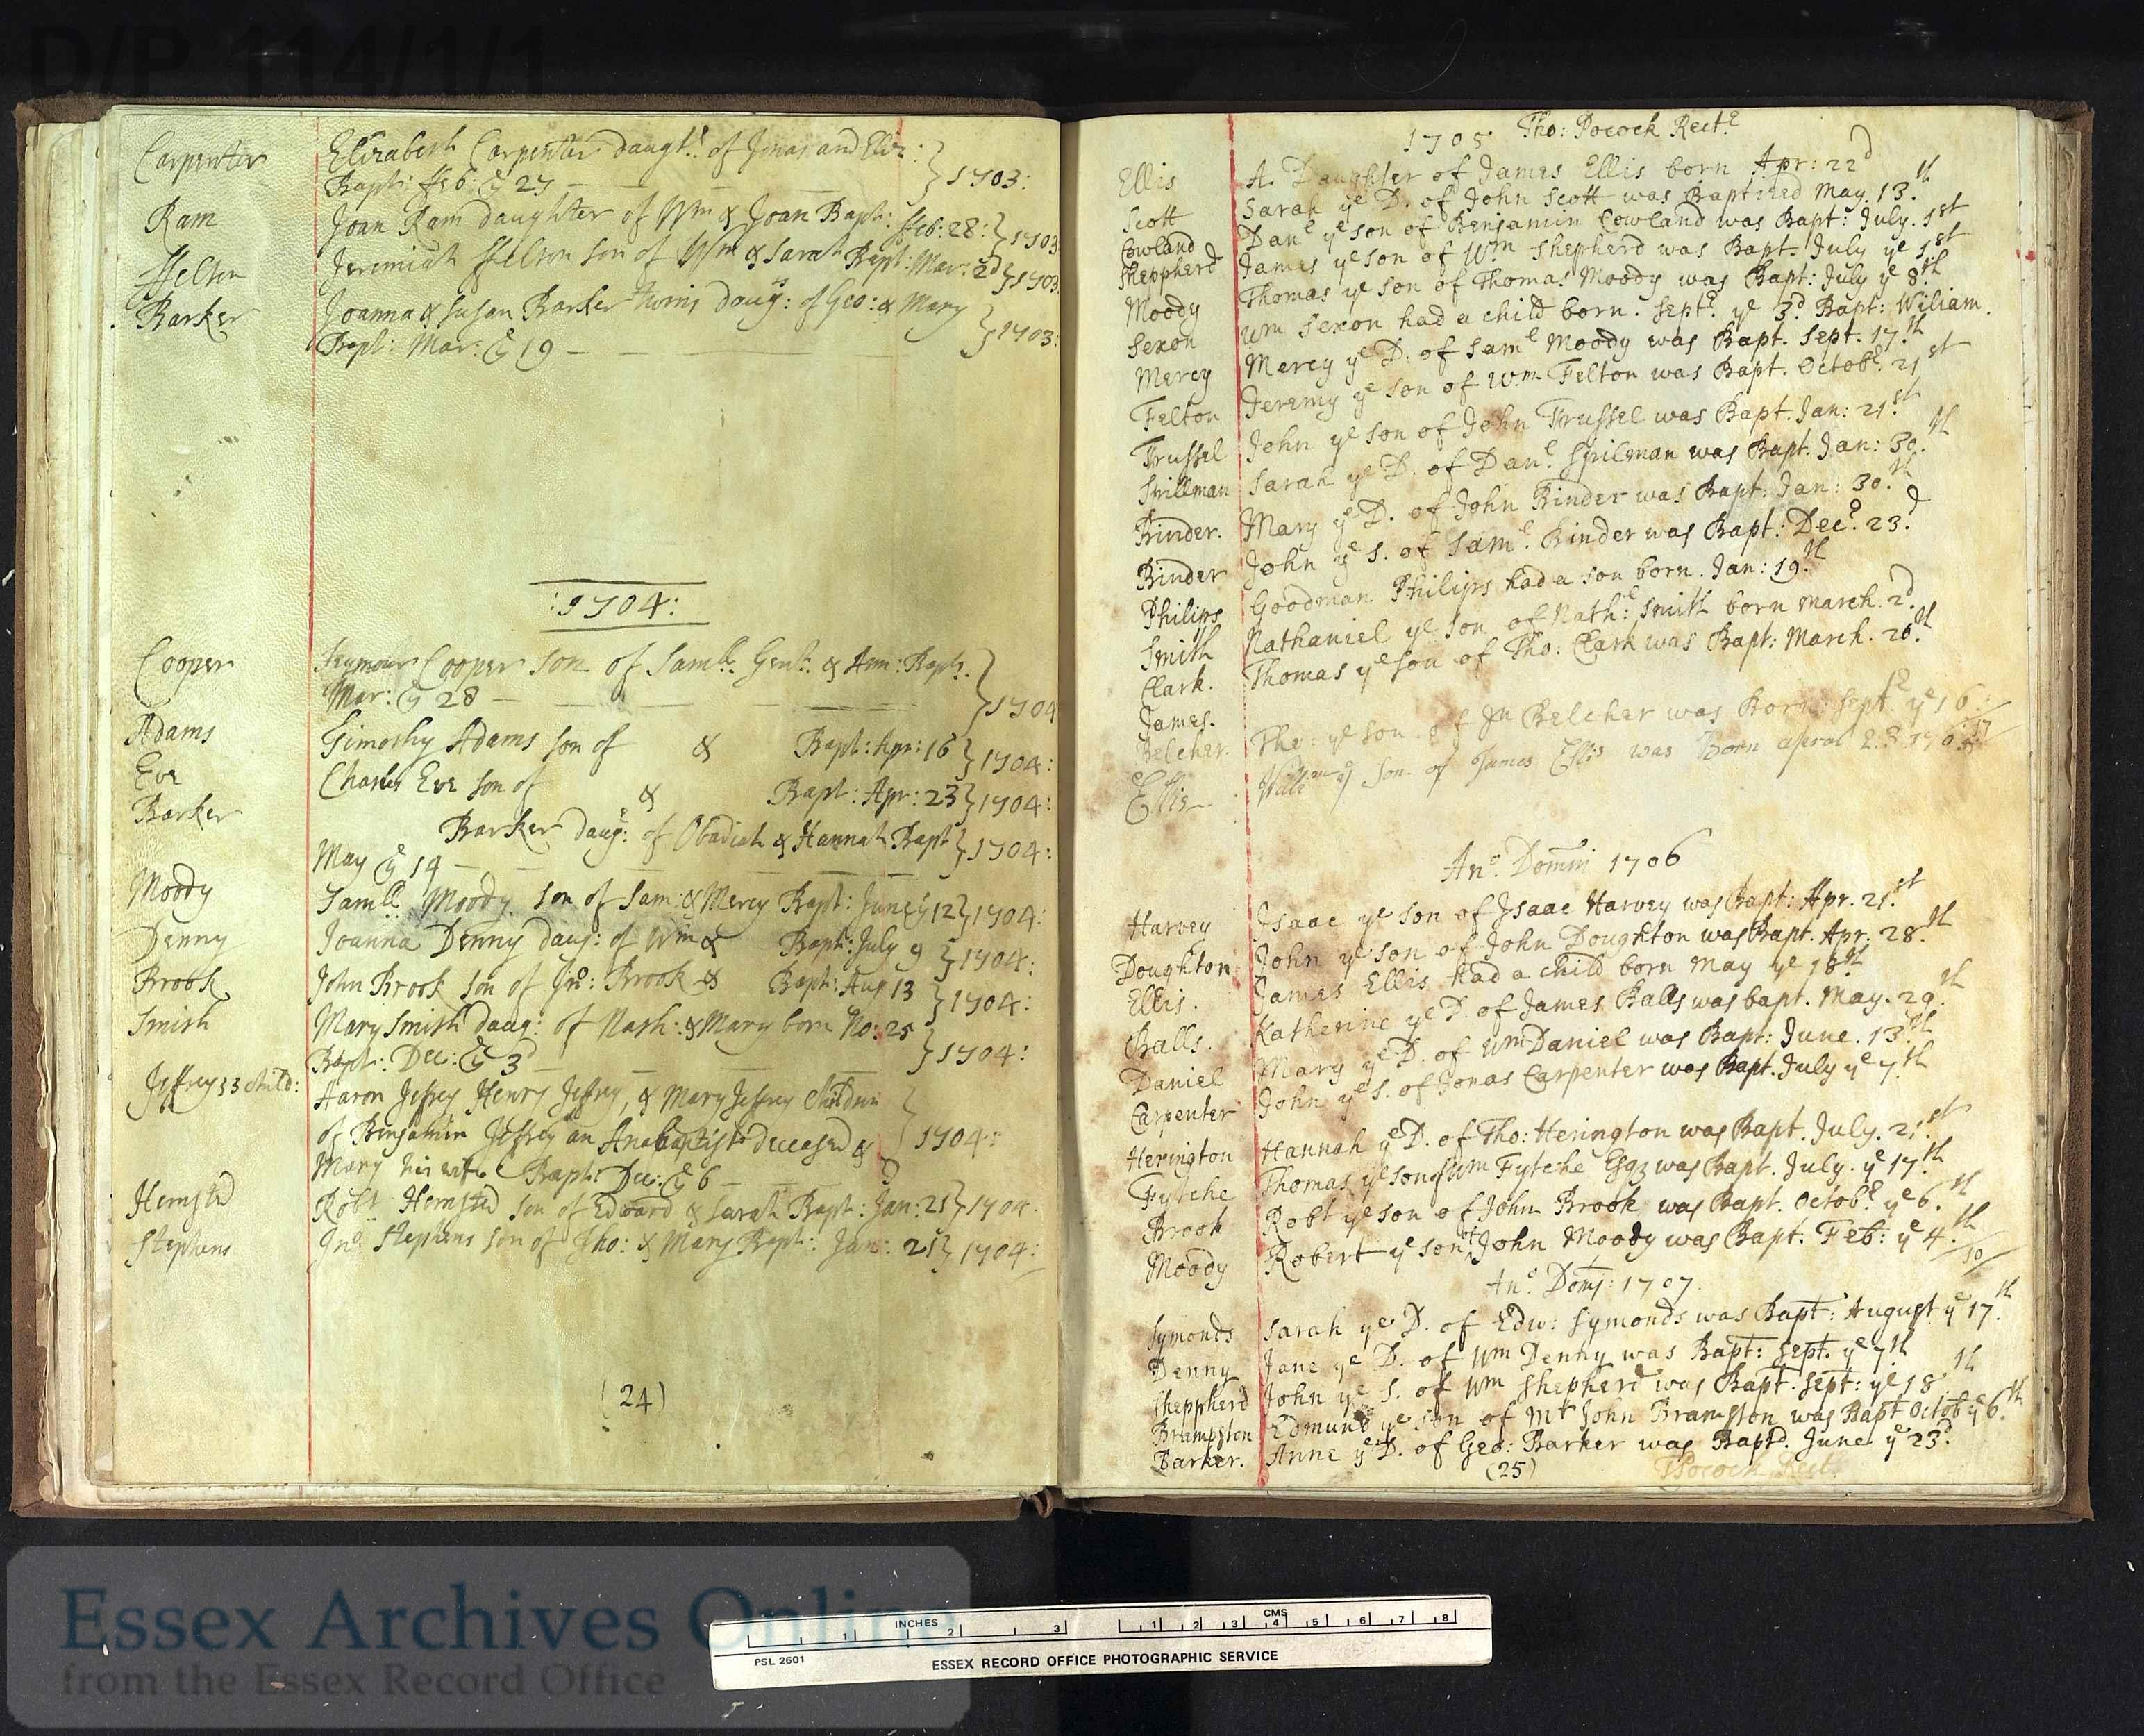 D/P 114/1/1
Carpenter Elizabeth Carpenter daught: of Jonas and Eliz:
Bapt: ffeb: ye 27 — — — } 1703:
Ram Joan Ram daughter of Wm & Joan Bapt: ffeb: 28: } 1703
ffelton Jeremiah ffelton son of Wm & Sarah Bapt: Mar: 2d } 1703
Barker Joanna & Susan Barker twins daugs: of Geo: & Mary
Bapt: Mar: ye 19 — — — } 1703:
:1704:
Cooper Seymour Cooper son of Samll. Gent: & Ann: Bapt.
Mar: ye 28 — — — } 1704
Adams Timothy Adams son of & Bapt: Apr: 16 } 1704:
Eve Charles Eve son of & Bapt: Apr: 23 } 1704:
Barker Barker daug: of Obadiah & Hannah Bapt
May ye 14 — — — } 1704:
Moody Samll. Moody son of Sam: & Mercy Bapt: June ye 12 } 1704:
Denny Joanna Denny daug: of Wm & Bapt: July 9 } 1704:
Brook John Brook son of Jno: Brook & Bapt: Aug 13 } 1704:
Smith Mary Smith daug: of Nath: & Mary born No: 25
Bapt: Dec: ye 3d — — — } 1704:
Jeffreys 3 child: Aaron Jeffrey Henry Jeffrey, & Mary Jeffrey Children
of Benjamin Jeffrey an Anabaptist deceased & } 1704:
Mary his wife Bapt: Dec: ye 6 — —
Hemsted Robt Hemsted son of Edward & Sarah Bapt: Jan: 21 } 1704.
Stephens Jno. Stephens son of Tho: & Mary Bapt: Jan: 21 } 1704:
(24)
1705 Tho: Pocock Rectr
Ellis A Daughter of James Ellis born Apr: 22d
Scott Sarah ye D. of John Scott was Baptized May. 13.th
Cowland Danl ye son of Benjamin Cowland was Bapt: July. 1st
Sheppherd James ye son of Wm Shepherd was Bapt. July ye 1st
Moody Thomas ye son of Thomas Moody was Bapt: July ye 8th
Sexon Wm Sexon had a child born. Septr ye 3d Bapt: Wiliam.
Mercy Mercy ye D. of Saml Moody was Bapt. Sept. 17.th
Felton Jeremy ye son of Wm. Felton was Bapt. Octobr. 21st
Trussel John ye son of John Trussel was Bapt. Jan: 21.st
Spillman Sarah ye D. of Danl. Spilman was Bapt. Jan: 30.th
Binder. Mary ye D. of John Binder was Bapt: Jan: 30.th
Binder John ye S. of Saml. Binder was Bapt: Decr. 23.d
Philips Goodman Philips had a son born. Jan: 19.th
Smith Nathaniel ye son of Nath: Smith born March. 2d.
Clark. Thomas ye son of Tho: Clark was Bapt: March. 26.th
James.
Belcher. The ye son of Jn Belcher was Born Septr ye 16:
Ellis. Willm ye son of James Ellis was Born
Ano. Domni 1706
Harvey Isaac ye son of Isaac Harvey was Bapt: Apr. 21.st
Doughton John ye son of John Doughton was Bapt. Apr: 28.th
Ellis. James Ellis had a child born May ye 18th
Balls. Katherine ye D. of James Balls was bapt. May. 29.th
Daniel Mary ye D. of Wm Daniel was Bapt: June. 13.th
Carpenter John ye S. of Jonas Carpenter was Bapt. July ye 7.th
Herington Hannah ye D. of Tho: Herington was Bapt. July. 21.st
Fytche Thomas ye son of Wm Fytche Esqz was Bapt. July. ye 17.th
Brook Robt ye son of John Brook was Bapt. Octobr ye 6.th
Moody Robert ye son of John Moody was Bapt: Feb: ye 4.th
10/
Ano. Domj: 1707.
Symonds Sarah ye D. of Edw: Symonds was Bapt: August ye 17.th
Denny Jane ye D. of Wm Denny was Bapt: Sept. ye 7th
Sheppherd John ye S. of Wm Shepherd was Bapt. Sept: ye 18th
Brampston Edmund ye son of Mr John Bramston was Bapt Octob ye 6.th
Barker. Anne ye D. of Geo: Barker was Bapd. June ye 23d
(25) TPocock Rectr.
Essex Archives Online
from the Essex Record Office
INCHES 1 2 3 CMS 1 2 3 4 5 6 7 8
PSL 2601 ESSEX RECORD OFFICE PHOTOGRAPHIC SERVICE